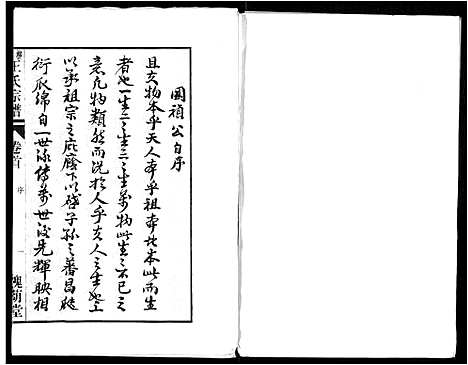 國禎公自序
且夫物本乎天人本乎祖本者本此而生
者也一生二二生三三生萬物此生生不已之
意凡物類然而況於人乎夫人之生也上
以承祖宗之庇廕下以啓子孫之蕃昌瓞
衍瓜綿自一世流傳萬世後先輝映相
王氏宗譜
卷首
序
一
槐蔭堂